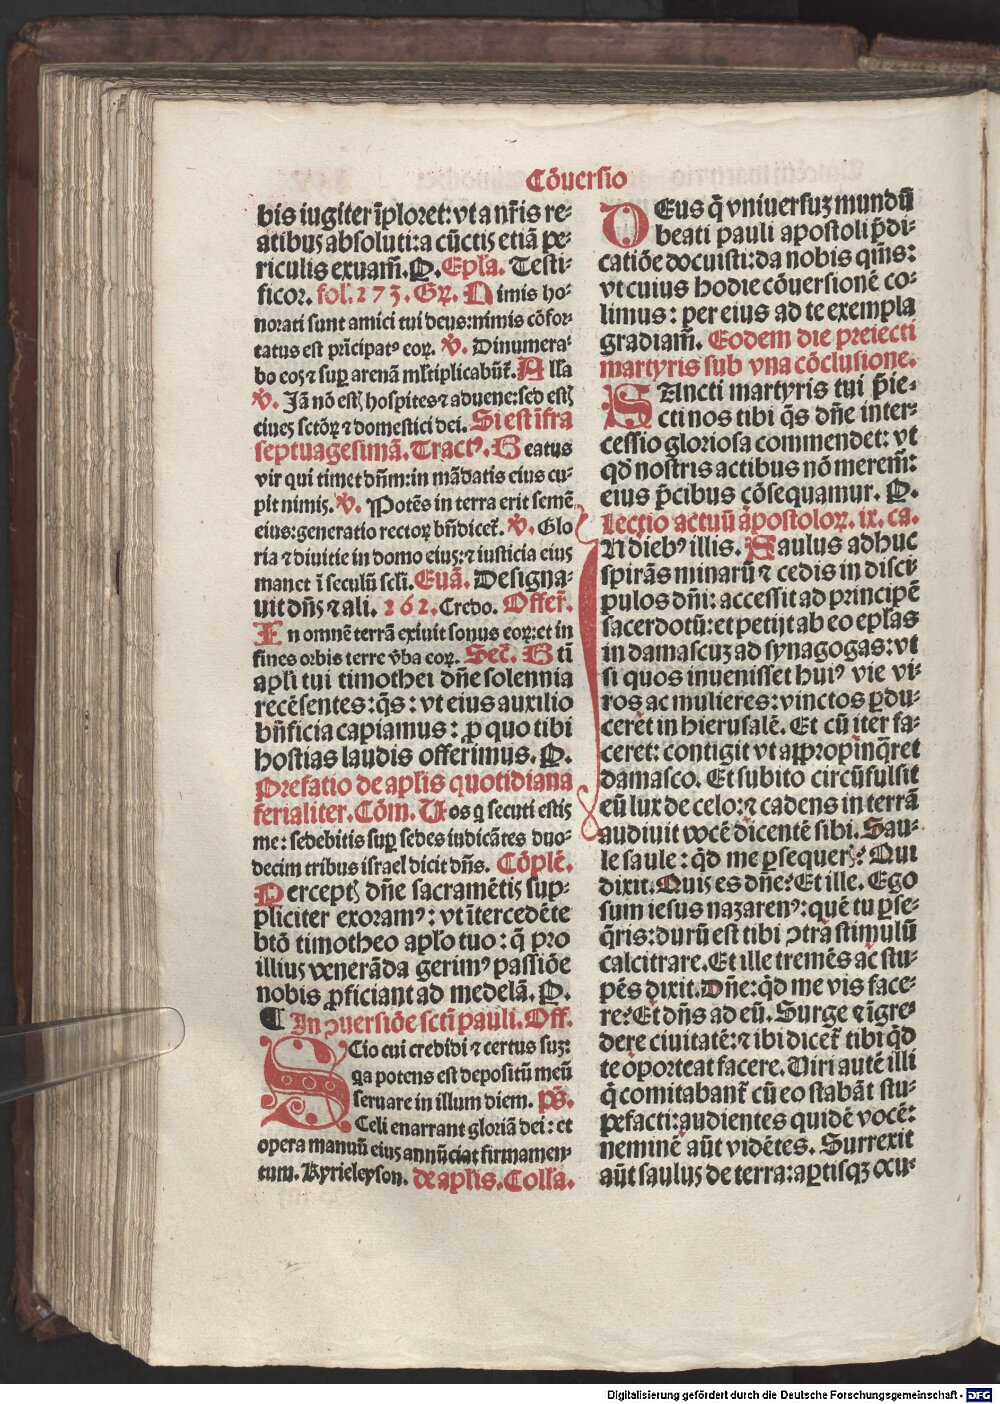 Cōuersio
bis iugiter īploret: vt a nr̄is re-
atibus absoluti: a cūctis etiā pe-
riculis exuam̄. P. Epl̄a. Testi-
ficor. fol. 273. Gꝝ. Nimis ho-
norati sunt amici tui deus: nimis cōfor-
tatus est prīcipatꝰ eoꝝ. ℣. Dinumera-
bo eos ⁊ suꝑ arenā ml̄tiplicabūt̄. Alla
℣. Jā nō estꝭ hospites ⁊ aduene: sed estꝭ
ciues sctōꝝ ⁊ domestici dei. Si est īfra
septuagesimā. Tractꝰ. Beatus
vir qui timet dn̄m: in mādatis eius cu-
pit nimis. ℣. Potēs in terra erit semē
eius: generatio rectoꝝ bn̄dicet̄. ℣. Glo
ria ⁊ diuitie in domo eius: ⁊ iusticia eius
manet ī seculū scl̄i. Euā. Designa-
uit dn̄s ⁊ ali. 162. Credo. Offer̄.
In omnē terrā exiuit sonus eoꝝ: et in
fines orbis terre v̄ba eoꝝ. Sec̄. Btī
apl̄i tui timothei dn̄e solennia
recēsentes: q̄s: vt eius auxilio
bn̄ficia capiamus: ꝓ quo tibi
hostias laudis offerimus. P.
Prefatio de apl̄is quotidiana
ferialiter. Cōm. Uos q̄ secuti estis
me: sedebitis suꝑ sedes iudicātes duo-
decim tribus israel dicit dn̄s. Cōplē.
Perceptꝭ dn̄e sacramētis sup-
pliciter exoramꝰ: vt ītercedēte
btō timotheo apl̄o tuo: q̄ pro
illius venerāda gerimꝰ passiōe
nobis ꝓficiant ad medelā. P.
¶ In ꝯuersiōe sctī pauli. Off.
Scio cui credidi ⁊ certus suꝫ:
qa potens est depositū meū
seruare in illum diem. pō.
Celi enarrant gloriā dei: et
opera manuū eius annūciat firmamen-
tum. Kyrieleyson. de apl̄is. Coll̄a.
DEus q̄ vniuersuꝫ mundū
beati pauli apostoli p̄di-
catiōe docuisti: da nobis qm̄s:
vt cuius hodie cōuersionē co-
limus: per eius ad te exempla
gradiam̄. Eodem die preiecti
martyris sub vna cōclusione.
SAncti martyris tui p̄ie-
cti nos tibi q̄s dn̄e inter-
cessio gloriosa commendet: vt
qd̄ nostris actibus nō merem̄:
eius p̄cibus cōsequamur. P.
Lectio actuū apostoloꝝ. ix. ca.
IN diebꝰ illis. Saulus adhuc
spirās minarū ⁊ cedis in disci
pulos dn̄i: accessit ad principē
sacerdotū: et petijt ab eo ep̄las
in damascuꝫ ad synagogas: vt
si quos inuenisset huiꝰ vie vi-
ros ac mulieres: vinctos ꝑdu-
ceret in hierusalē. Et cū iter fa-
ceret: contigit vt appropinq̄ret
damasco. Et subito circūfulsit
eū lux de celo: ⁊ cadens in terrā
audiuit vocē dicentē sibi. Sau-
le saule: qd̄ me ꝑsequerꝭ? Qui
dixit. Quis es dn̄e? Et ille. Ego
sum iesus nazarenꝰ: quē tu ꝑse-
q̄ris: durū est tibi ꝯtra stimulū
calcitrare. Et ille tremēs ac stu-
pēs dixit. Dn̄e: qd̄ me vis face-
re? Et dn̄s ad eū. Surge ⁊ īgre-
dere ciuitatē: ⁊ ibi dicet̄ tibi qd̄
te oporteat facere. Uiri autē illi
q̄ comitabant̄ cū eo stabāt stu-
pefacti: audientes quidē vocē:
neminē aūt vidētes. Surrexit
aūt saulus de terra: aꝑtisqꝫ ocu-
Digitalisierung gefördert durch die Deutsche Forschungsgemeinschaft - DFG